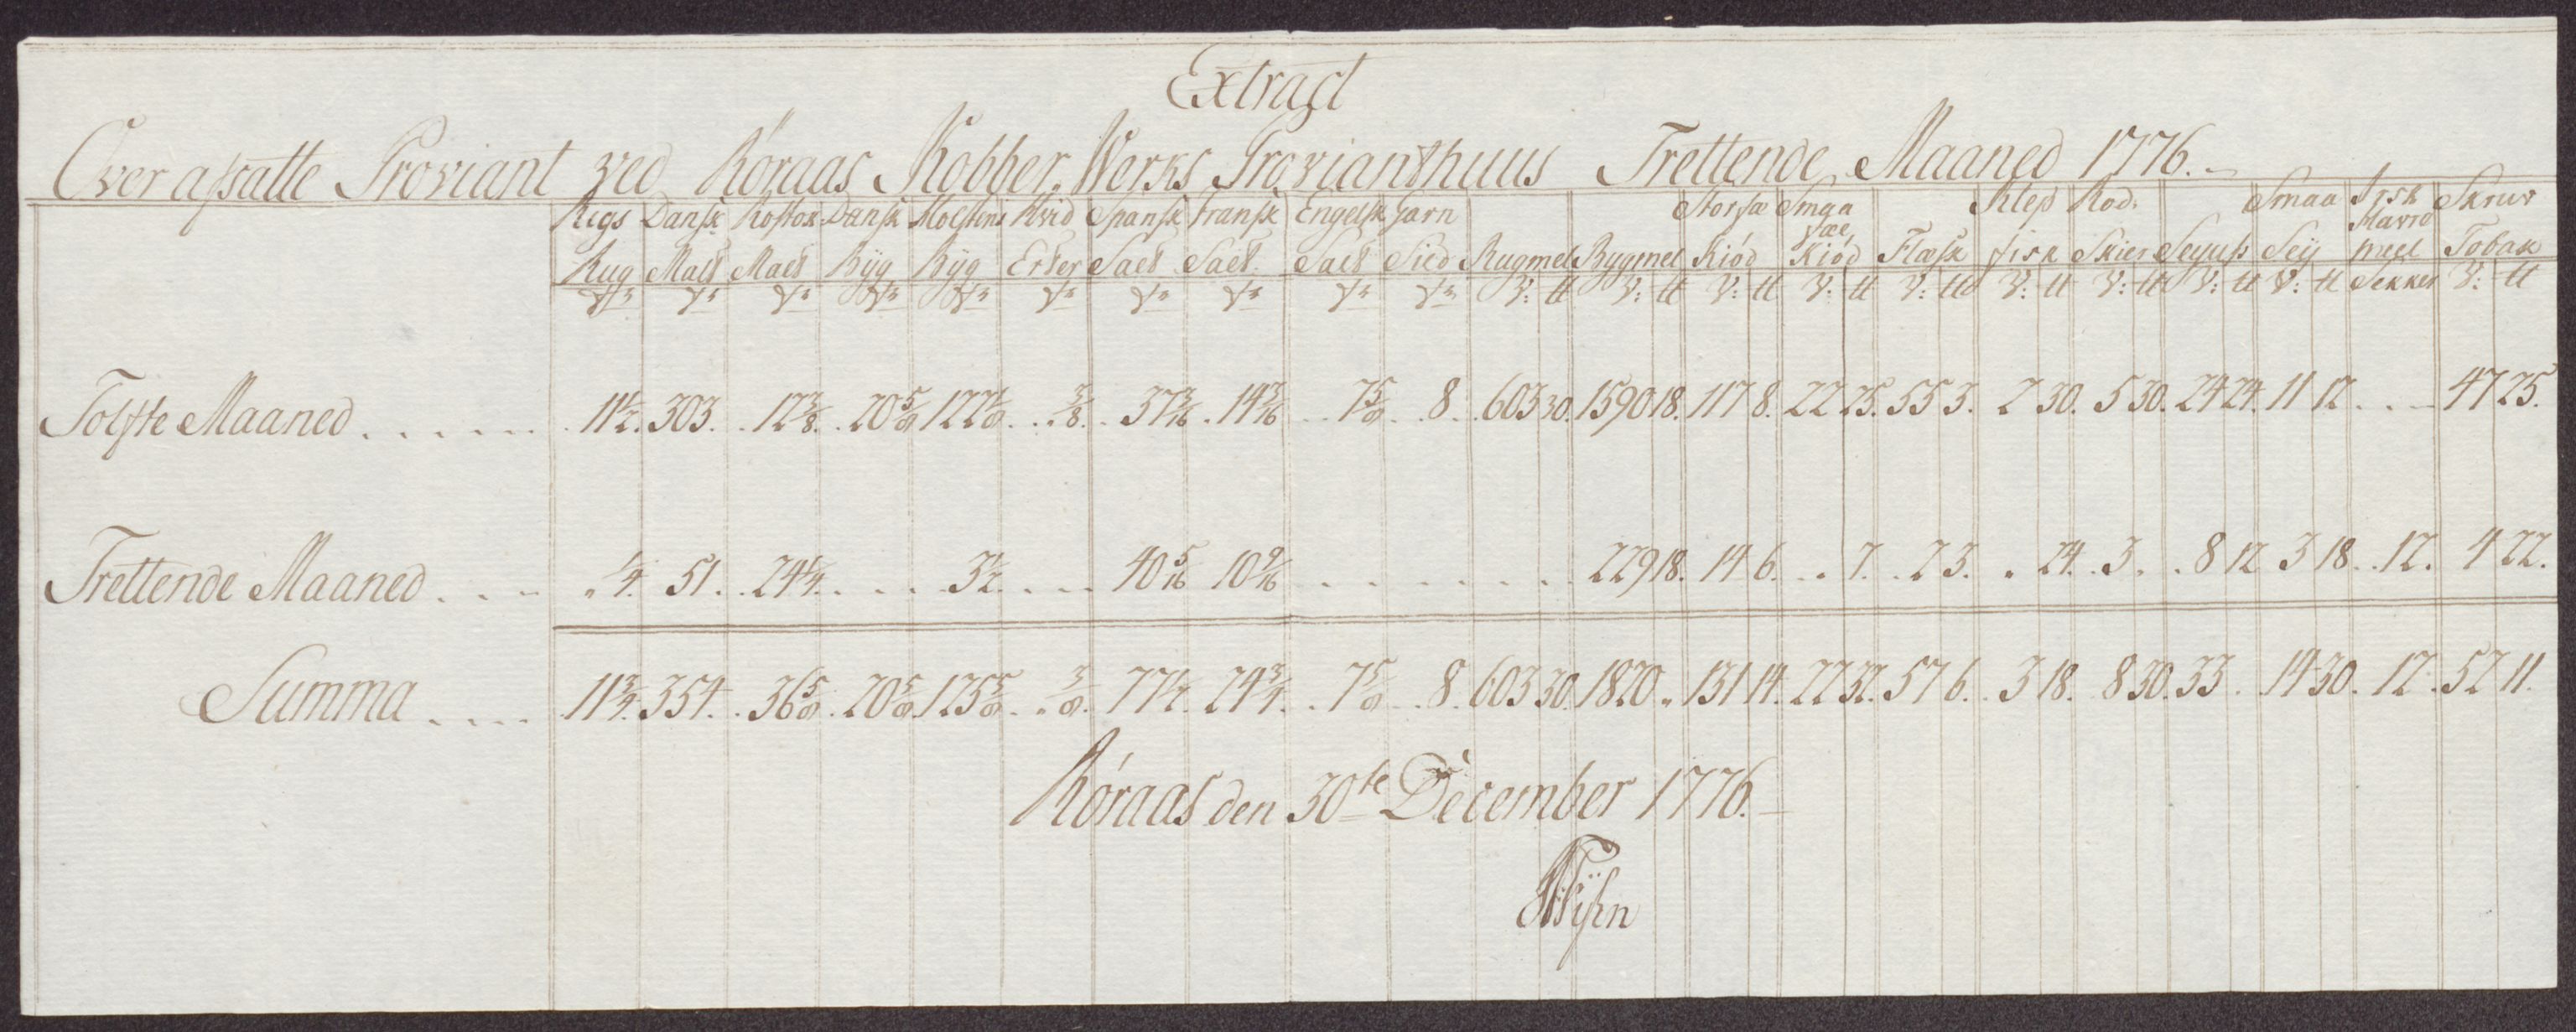 Extract
Over afsatte Proviant ved Röraas Kobber-Werks Provianthuus Trettende Maaned 1776.
Rigs Dansk Rostok Dansk Holstens Hvid Spansk Fransk Engelsk Garn Storfæ Smaa Klep Rod. Smaa Irsk Skruv
fæe Havre
Rug Malt Malt Byg Byg Erter Salt Salt Salt Sild Rugmel Bygmel Kiód Kiód Flæsk fisk Skier Seyufs Seÿ meel Tobak
V: tt V: tt V: tt V: tt V: tt V: tt V: tt V: tt V: tt Sekker V: tt
Tolfte Maaned . . . . . . 11 1/2. 303. 12 3/8. 20 5/8 122 1/8 . . 3/8. 37 3/16 . 14 3/16 . . 7 5/8 . 8 . 603 30. 1590 18. 117 8. 22 25. 55 3. 2 30. 5 30. 24 24. 11 12 . . . 47 25.
Trettende Maaned . . . „ 1/4. 51. 24 1/4. . . . 3 1/2. . . . 40 5/16 10 9/16 . . . . . . 229 18. 14 6. „ 7. 2 3. „ 24. 3 „ . 8 12 3 18 . 12. 4 22.
Summa . . . . 11 3/4. 354. 36 5/8. 20 5/8 125 5/8 . . 3/8. 77 1/2. 24 3/4. . 7 5/8 . . 8. 603 30. 1820 „ 131 14. 22 32. 57 6. 3 18. 8 30. 33 . 14 30. 12. 52 11.
Róraas den 30te December 1776.